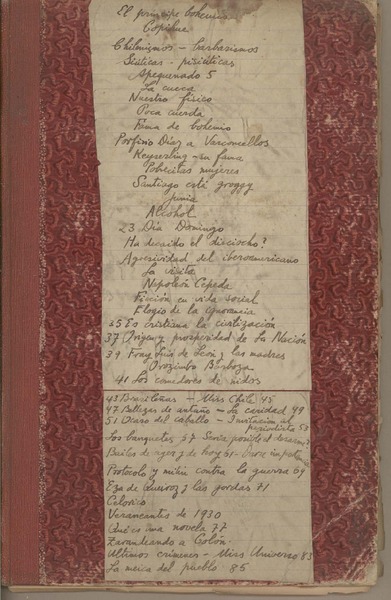 El príncipe bohemio
Copihue
Chilenismos - barbarismos
Siúticas - pisiúticas
Apequenado 5
La cueca
Nuestro físico
Poca cuerda
Fama de bohemio
Porfirio Díaz a Vasconcellos
Keyserling - su fama
Pobrecitas mujeres
Santiago está groggy
Junia
Alcohol
23 Día Domingo
Ha decaído el dieciocho?
Agresividad del iberoamericano
La visita
Napoleón Cepeda
Ficción en vida social
Elogio de la ignorancia
35 Es cristiana la civilización
37 Origen y prosperidad de La Nación
39 Fray Luis de León y las madres
Orozimbo Barboza
41 Los comedores de nidos
43 Brasileñas - Miss Chile 45
47 Bellezas de antaño - La caridad 49
51 Ocaso del caballo - Invitación al periodista 53
Los banquetes 57 Sería posible el
Bailes de ayer y de hoy 61 -
Protocolo y mitin contra la guerra 69
Eça de Queiroz y las gordas 71
Celorico
Veraneantes de 1930
Qué es una novela 77
Zarandeando a Colón
Ultimos crímenes - Miss Universo 83
La meica del pueblo 85